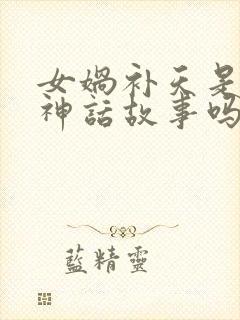 女媧补天是
神話故事吗
藍精靈